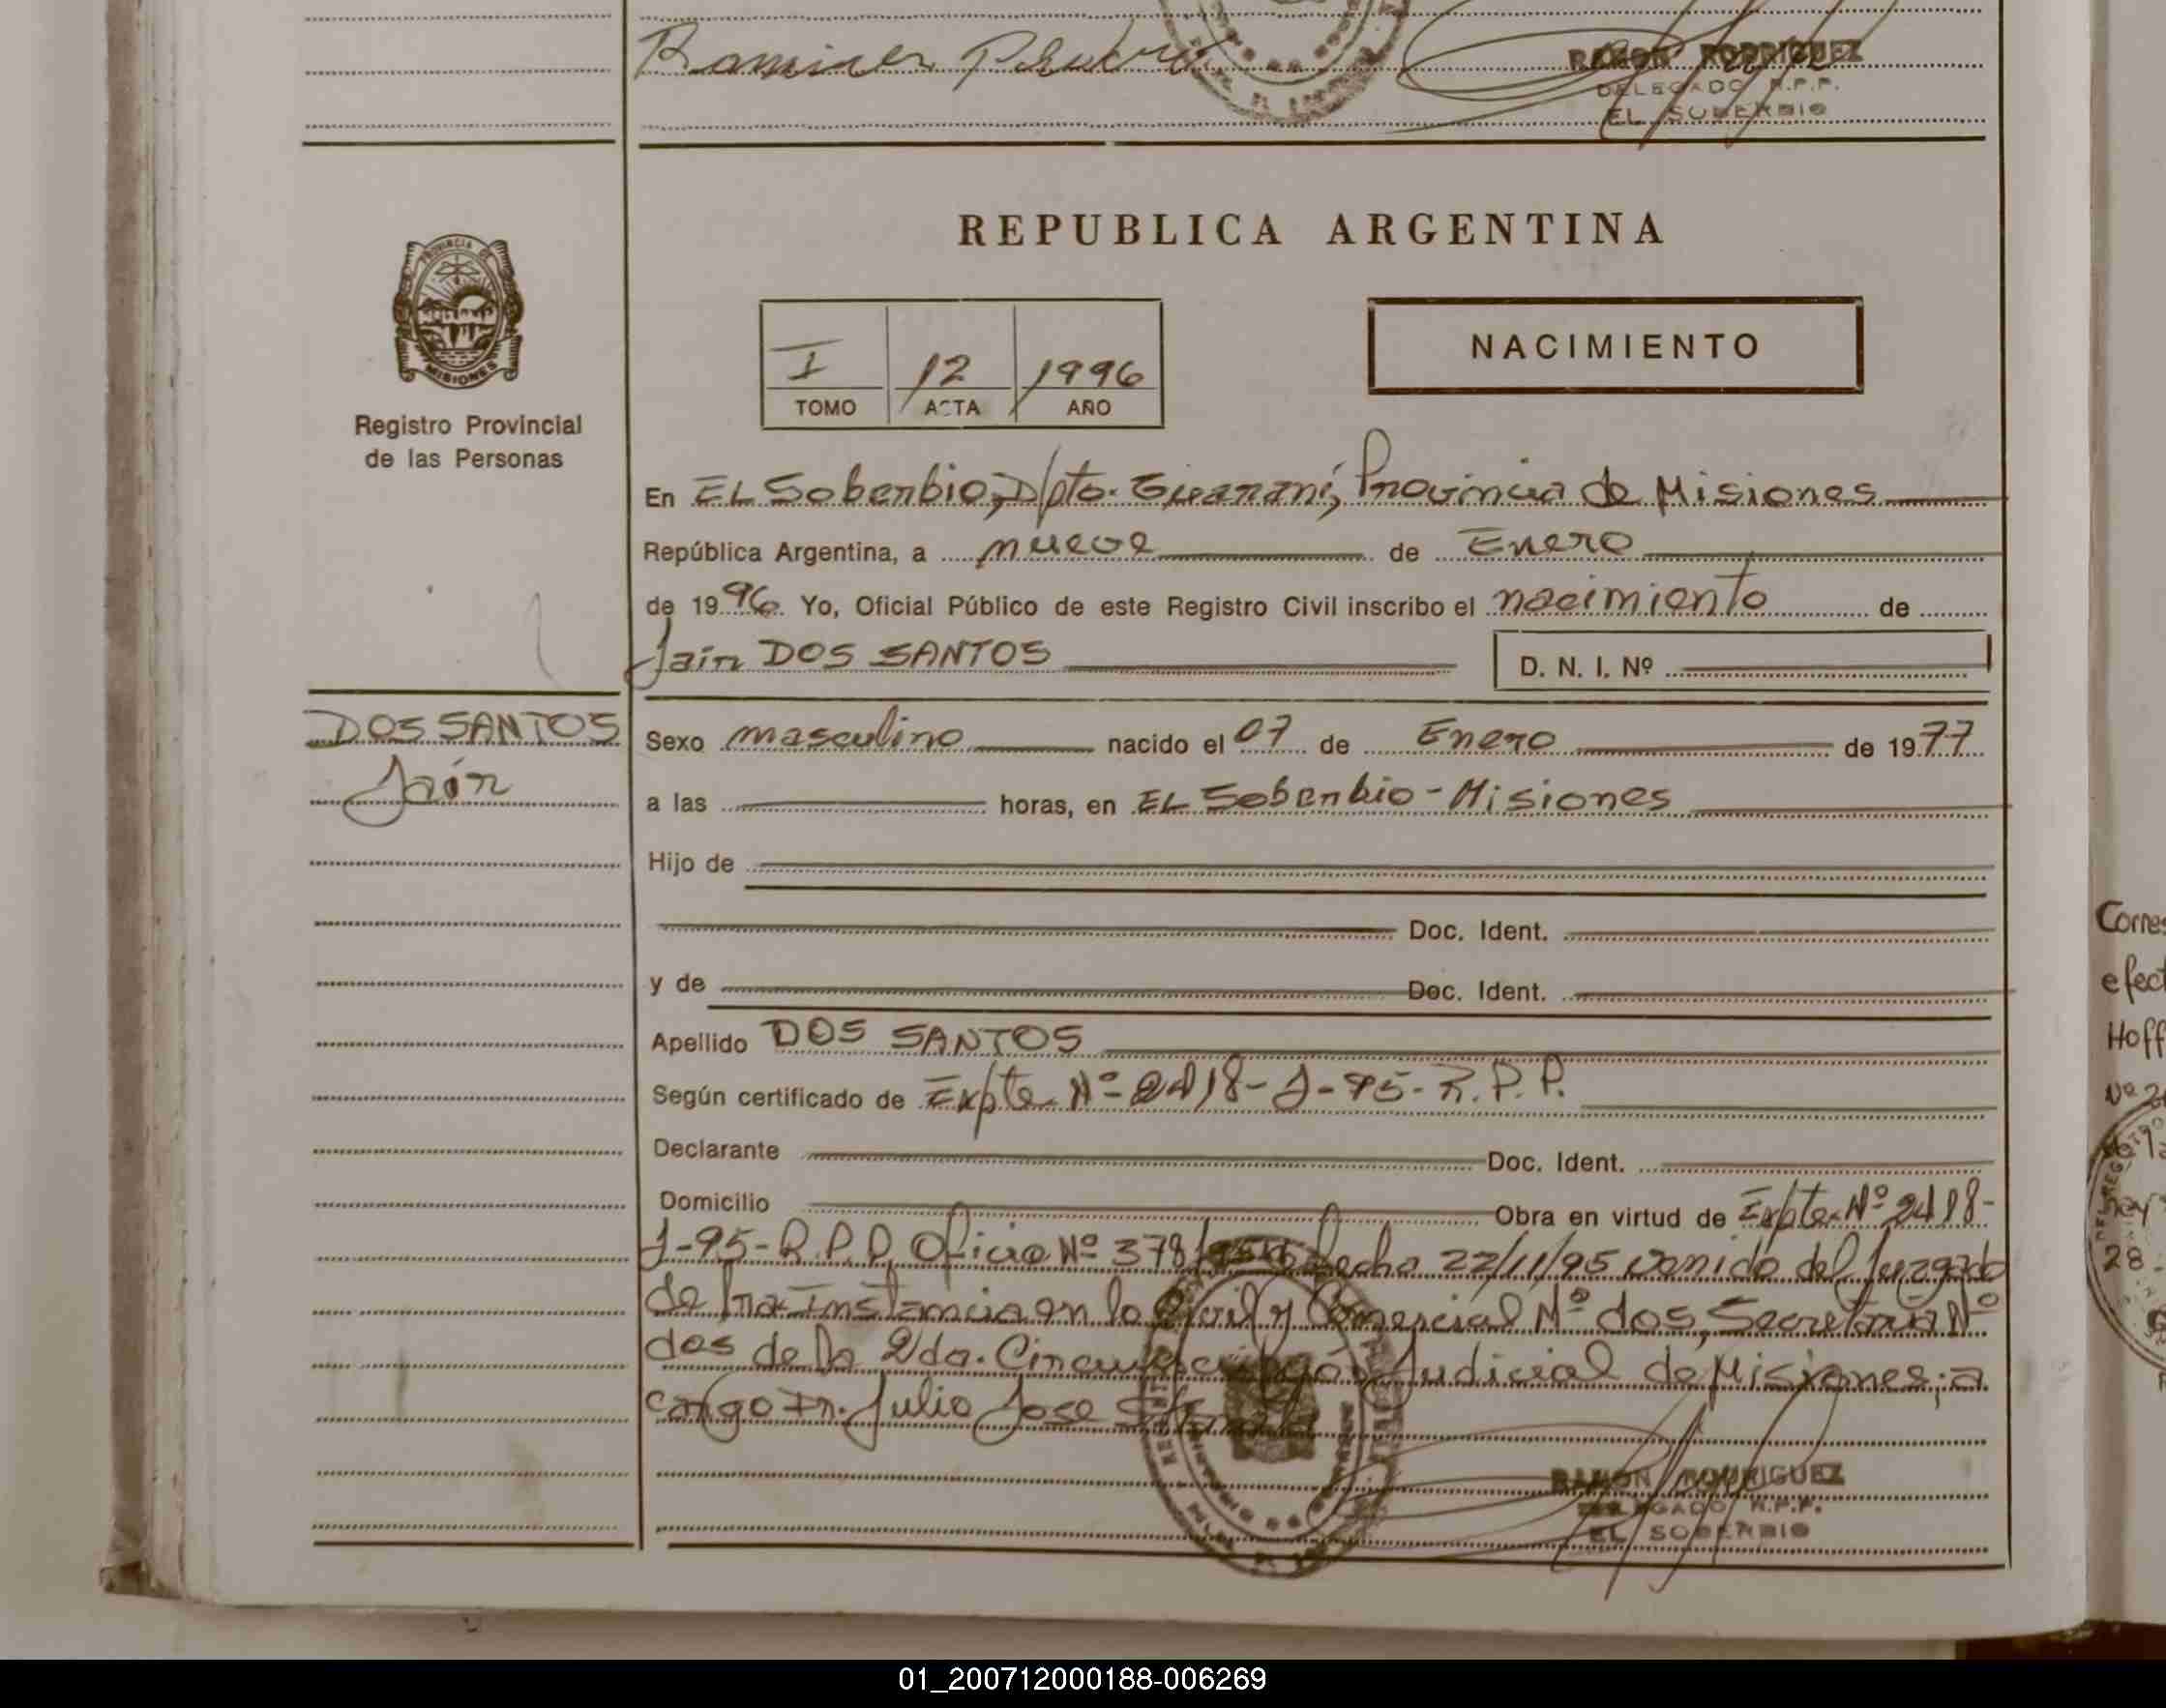 RAMON RODRIGUEZ
DELEGADO R.P.P.
EL SOBERBIO
REPUBLICA ARGENTINA
PROVINCIA DE
MISIONES
Registro Provincial
de las Personas
I 12 1996
TOMO ACTA AÑO
NACIMIENTO
En EL Soberbio, Dpto. Guaraní, Provincia de Misiones
República Argentina, a nueve de Enero
de 1996 Yo, Oficial Público de este Registro Civil inscribo el nacimiento de
Jaín DOS SANTOS
D. N. I. Nº
DOS SANTOS
Jaín
Sexo masculino nacido el 07 de Enero de 1977
a las horas, en EL Soberbio - Misiones
Hijo de
Doc. Ident.
y de Doc. Ident.
Apellido DOS SANTOS
Según certificado de Expte. Nº 2418-J-95-R.P.P.
Declarante Doc. Ident.
Domicilio Obra en virtud de Expte. Nº 2418-
J-95-R.P.P. Oficio Nº 378/95 fecha 22/11/95 venido del Juzgado
de 1ra. Instancia en lo Civil y Comercial Nº dos, Secretaria Nº
dos de la 2da. Circunscripción Judicial de Misiones; a
cargo Dr. Julio Jose
RAMON RODRIGUEZ
DELEGADO R.P.P.
EL SOBERBIO
Corres
efect
Hoff
Nº 2
28
01_200712000188-006269